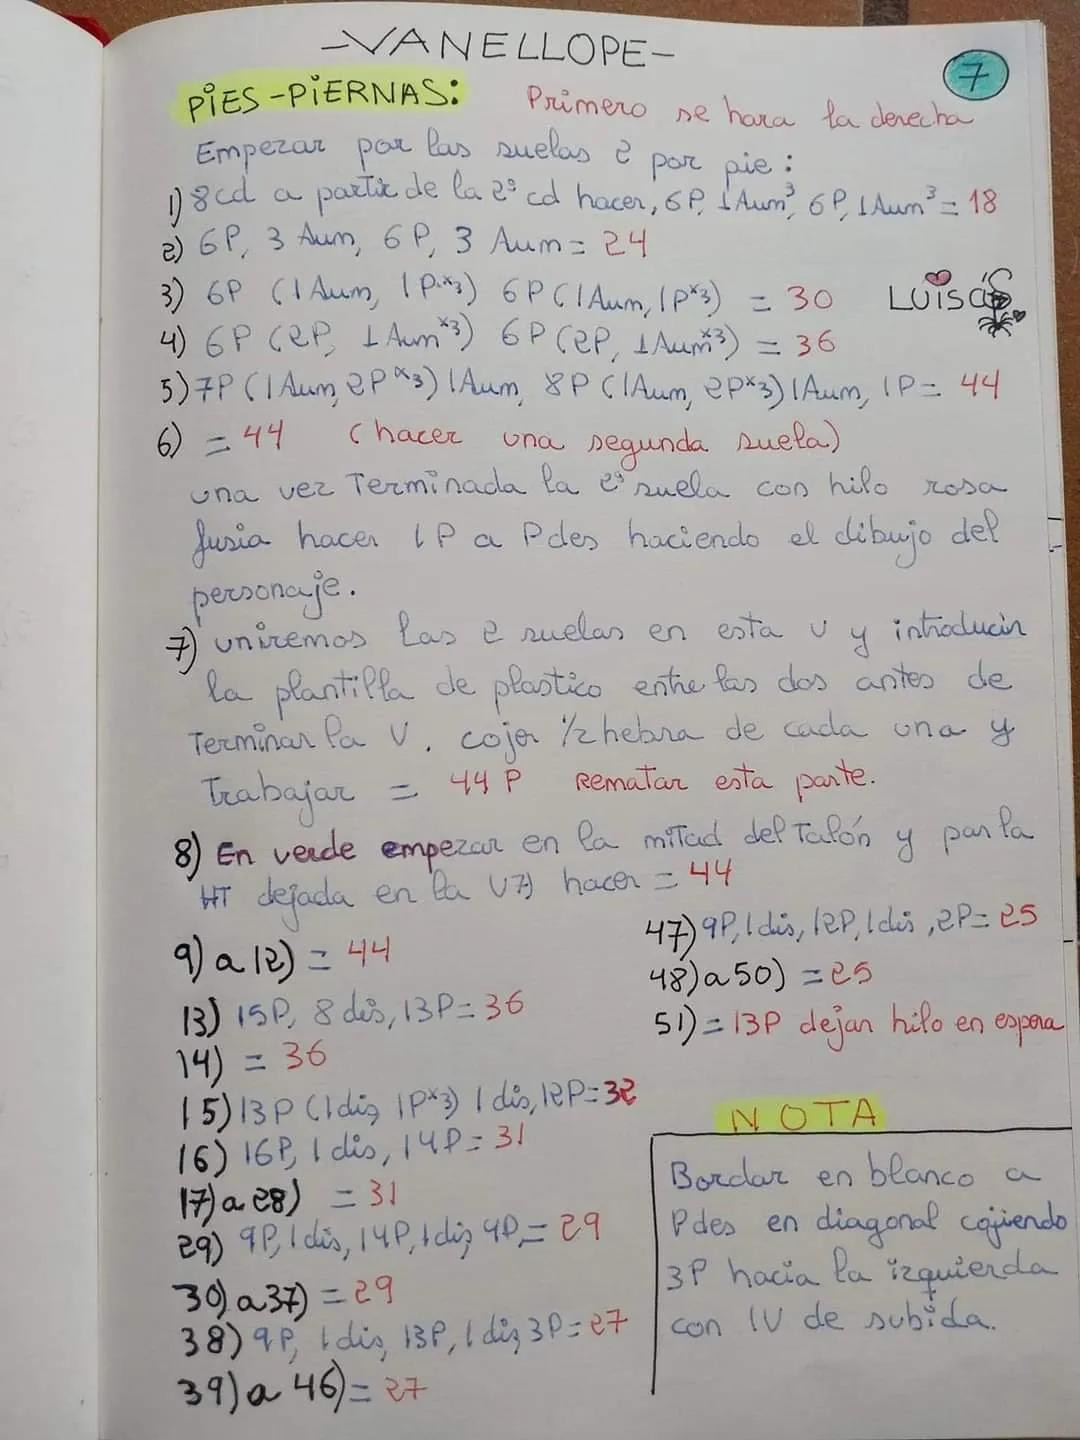 -VANELLOPE-
7
PIES-PIERNAS: Primero se hara la derecha
Empezar por las suelas 2 por pie:
1) 8cd a partir de la 2ª cd hacer, 6P, 1Aum³, 6P, 1Aum³ = 18
2) 6P, 3 Aum, 6P, 3 Aum = 24
3) 6P (1Aum, 1P×3) 6P (1Aum, 1P×3) = 30
LUISA
4) 6P (2P, 1Aum×3) 6P (2P, 1Aum×3) = 36
5) 7P (1Aum, 2P×3) 1Aum, 8P (1Aum, 2P×3) 1Aum, 1P = 44
6) = 44 (hacer una segunda suela)
una vez Terminada la 2ª suela con hilo rosa
fusia hacer 1P a Pdes haciendo el dibujo del
personaje.
7) uniremos las 2 suelas en esta V y introducir
la plantilla de plastico entre las dos antes de
Terminar la V. cojer 1/2 hebra de cada una y
Trabajar = 44 P Rematar esta parte.
8) En verde empezar en la mitad del Talón y por la
HT dejada en la V7) hacer = 44
9) a 12) = 44
13) 15P, 8 dis, 13P = 36
14) = 36
15) 13P (1dis, 1P×3) 1dis, 12P = 32
16) 16P, 1 dis, 14P = 31
17) a 28) = 31
29) 9P, 1dis, 14P, 1dis, 4P = 29
30) a 37) = 29
38) 9P, 1dis, 13P, 1dis, 3P = 27
39) a 46) = 27
47) 9P, 1dis, 12P, 1dis, 2P = 25
48) a 50) = 25
51) = 13P dejar hilo en espera
NOTA
Bordar en blanco a
Pdes en diagonal cojiendo
3P hacia la izquierda
con 1V de subida.